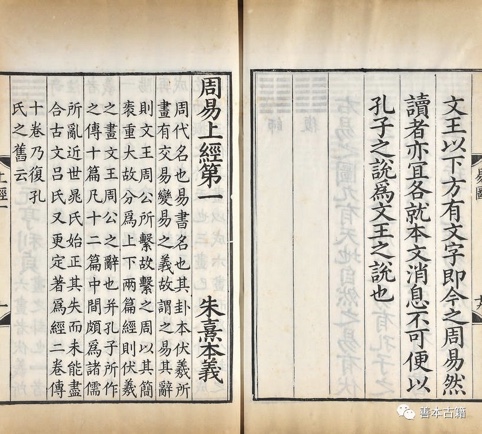 文王以下方有文字即今之周易然
讀者亦宜各就本文消息不可便以
孔子之說爲文王之說也
周易上經第一
朱熹本義
周代名也易書名也其卦本伏羲所
畫有交易變易之義故謂之易其辭
則文王周公所繫故繫之周以其簡
袠重大故分爲上下兩篇經則伏羲
之畫文王周公之辭也并孔子所作
之傳十篇凡十二篇中間頗爲諸儒
所亂近世晁氏始正其失而未能盡
合古文呂氏又更定著爲經二卷傳
十卷乃復孔
氏之舊云
上經一
易圖
善本古籍